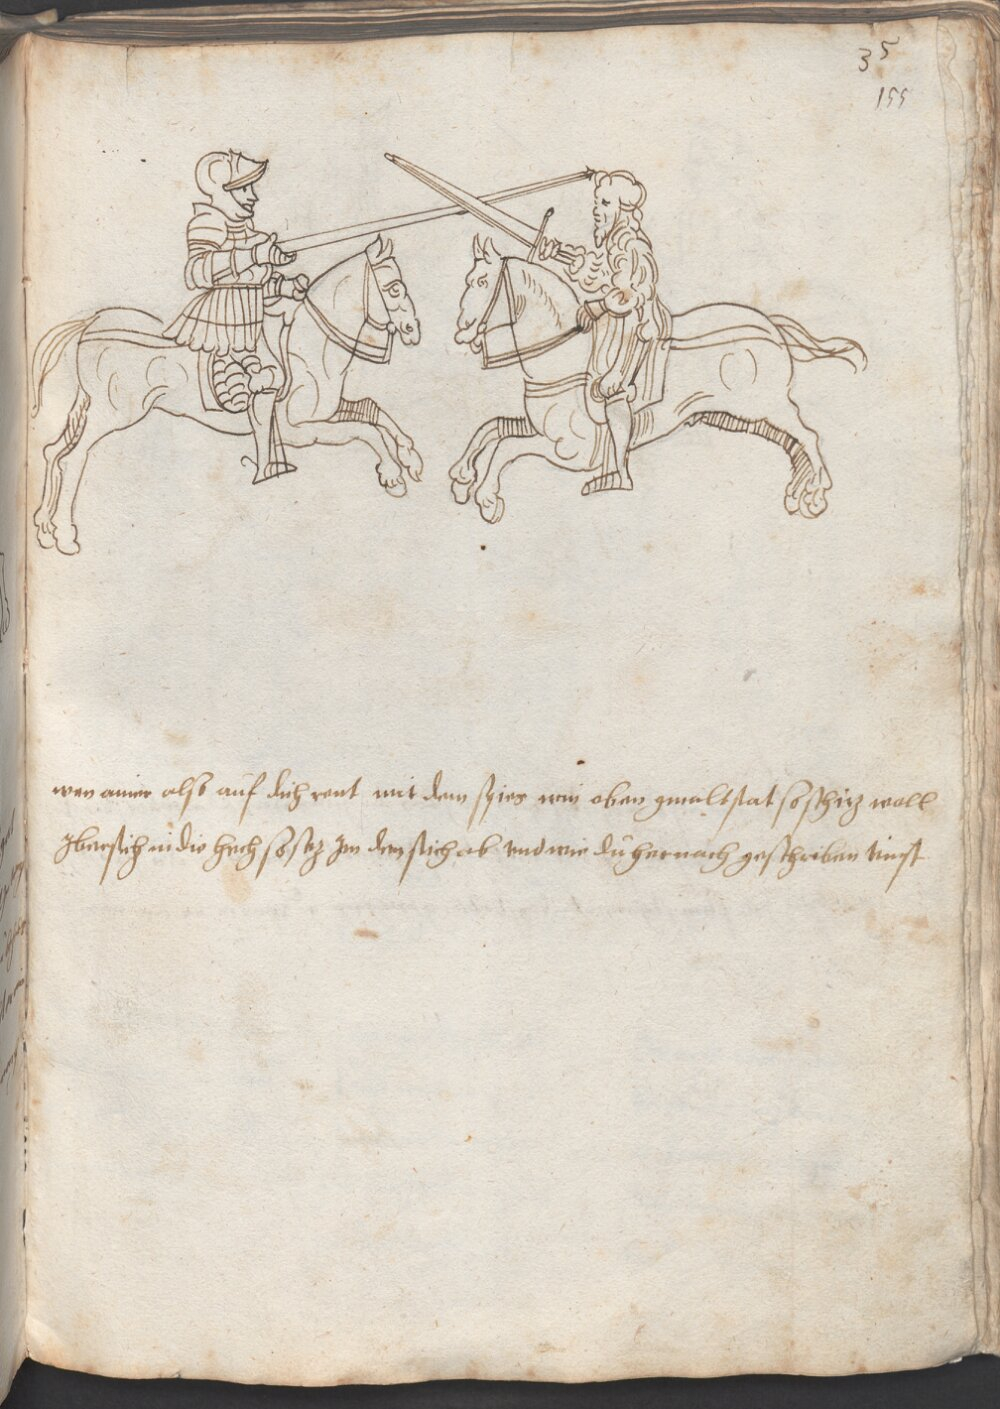 35
155
wen ainer also auf dich rent mit dem spies wie oben gmalt stat so schiz woll
Ibersich in die hech so sez Im den stich ab vnd wie du hernach geschriben vinst